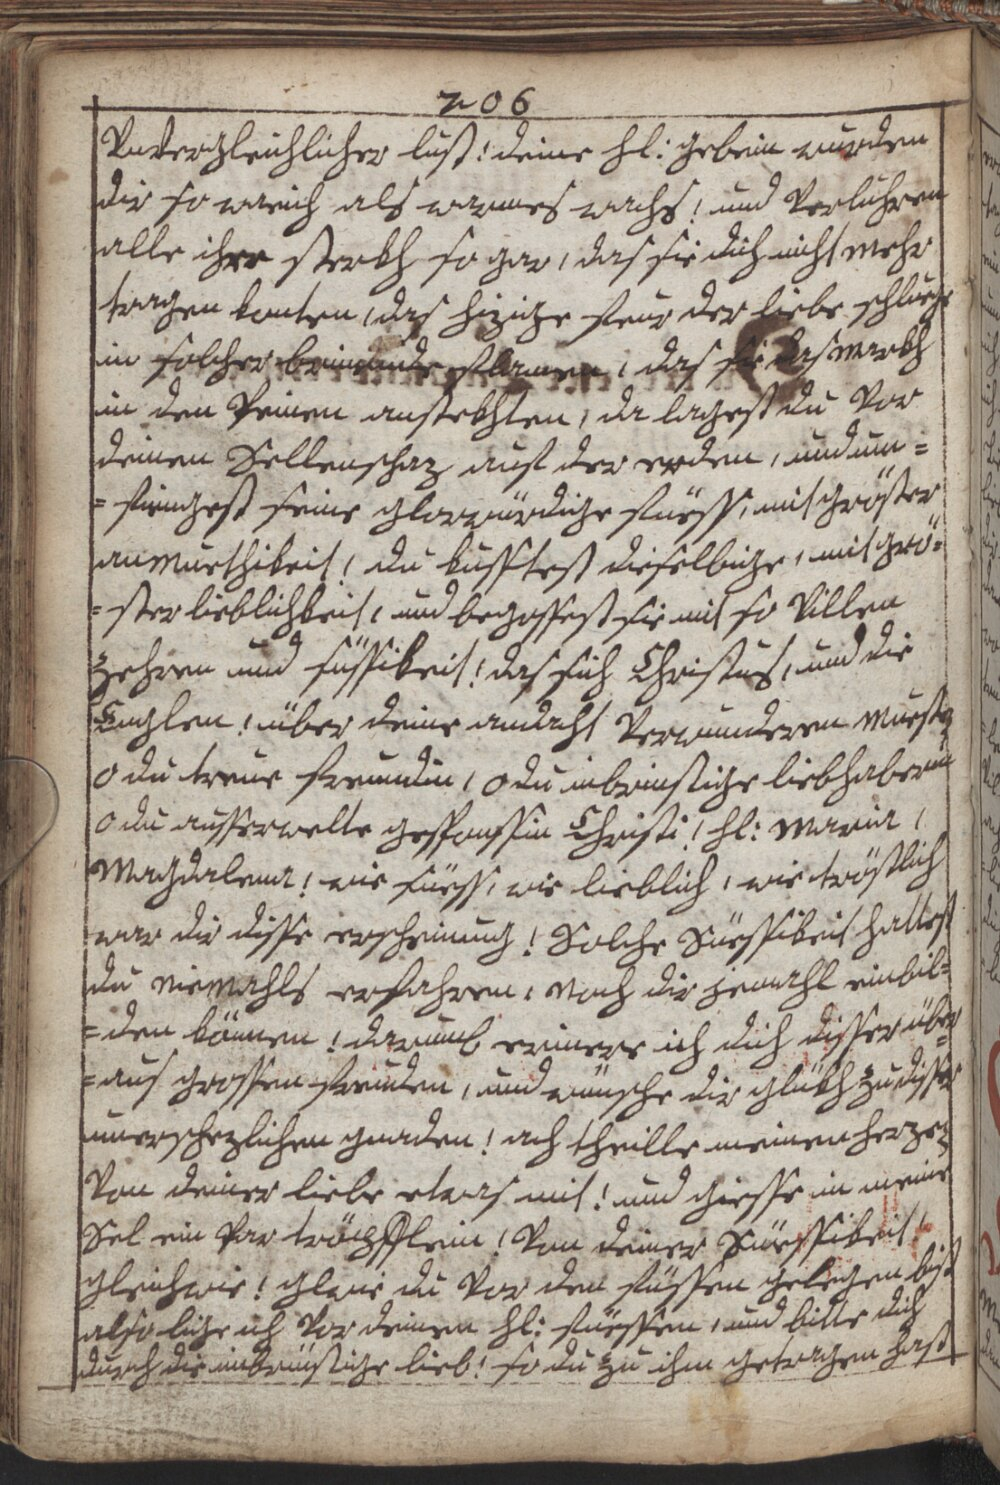 206
Unvergleichlicher lust! deine hl: gebein wurden
dir so weich als warmes wachs! und verluhren
alle ihre sterkh so gar, das sie dich nicht mehr
tragen konten, das hizige feur der liebe schluege
in solcher brinende flamen, das sie das markh
in den beinen anstekhten, da lagest du vor
deinen Sellenschaz auf der erden, und um=
=fiengest seine glorwürdige füess, mit gröster
anmuethikeit! du kusstest dieselbige, mit grö=
=ster lieblichkeit, und begossest sie mit so villen
zehren und süssikeit! das sich Christus, und die
Englen! über deine andacht verwunderen muesten
o du treue freundin, o du inbrinstige liebhaberin
o du ausserwelte gesponssin Christi! hl: Maria,
Magdalena! wie süess, wie lieblich, wie tröstlich
war dir disse erscheinung! Solche Süessikeit hattest
du niemahls erfahren, noch dir jemahl einbil=
=den können! darumb erinere ich dich disser über=
=aus grossen freuden, und wünsche dir glükh zu disser
unerschezlichen gnaden! ach theille meinen herzen
von deiner liebe etwas mit! und giesse in meine
Sel ein par tröpfflein! von deiner Süessikeit!
gleichwie! gleich du vor den füssen gelegen bist
also lige ich vor deinen hl: füessen, und bitte dich
durch die inbrünstige lieb! so du zu ihm getragen hast